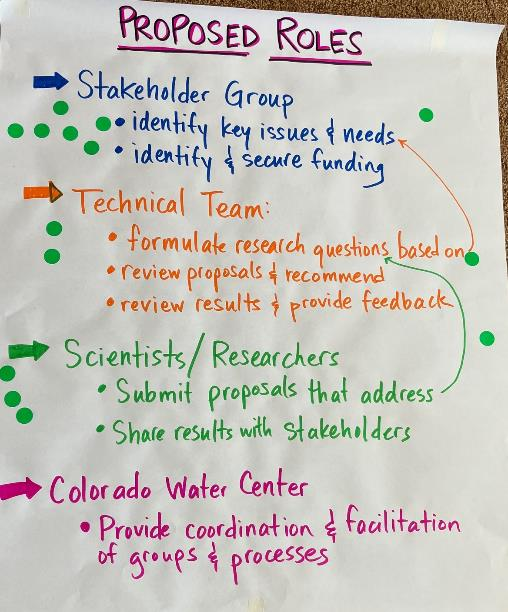 PROPOSED ROLES
Stakeholder Group
• identify key issues & needs
• identify & secure funding
Technical Team:
• formulate research questions based on
• review proposals & recommend
• review results & provide feedback
Scientists/Researchers
• Submit proposals that address
• Share results with Stakeholders
Colorado Water Center
• Provide coordination & facilitation
of groups & processes